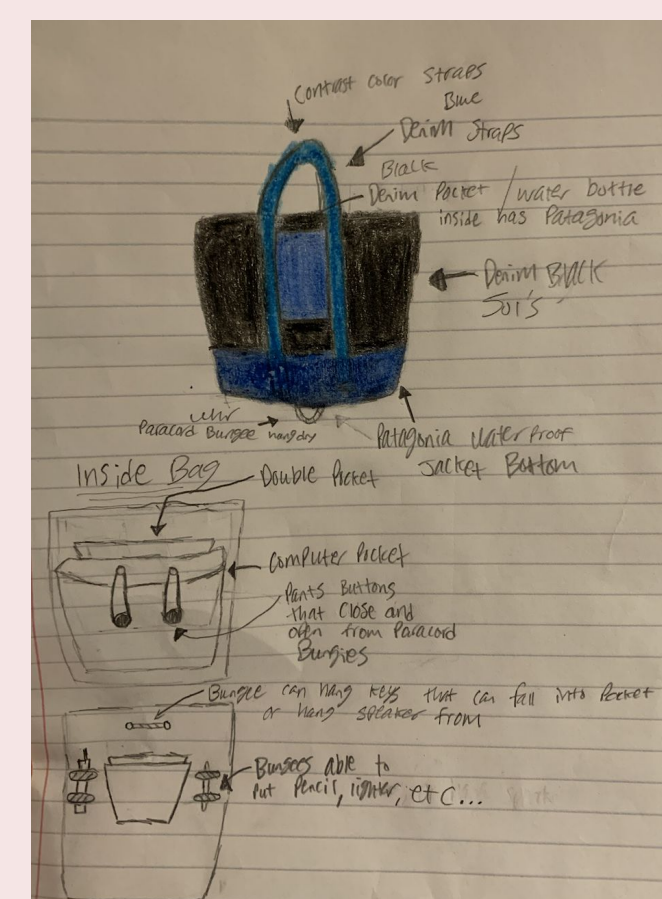 Contrast color straps
Blue
Denim Straps
Black
Denim Pocket / water bottle
inside has Patagonia
Denim Black
501's
Paracord Bungee hang dry
Patagonia waterproof
Jacket Bottom
Inside Bag
Double Pocket
Computer Pocket
Pants Buttons
that close and
open from Paracord
Bungies
Bungee can hang keys that can fall into Pocket
or hang speaker from
Bungees able to
Put Pencil, lighter, etc...